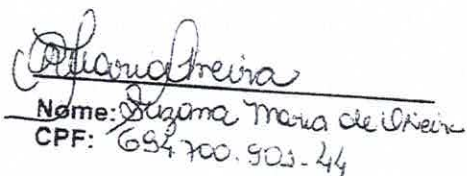 Nome: Suzana Maria de Oliveira
CPF: 694.700.901-44